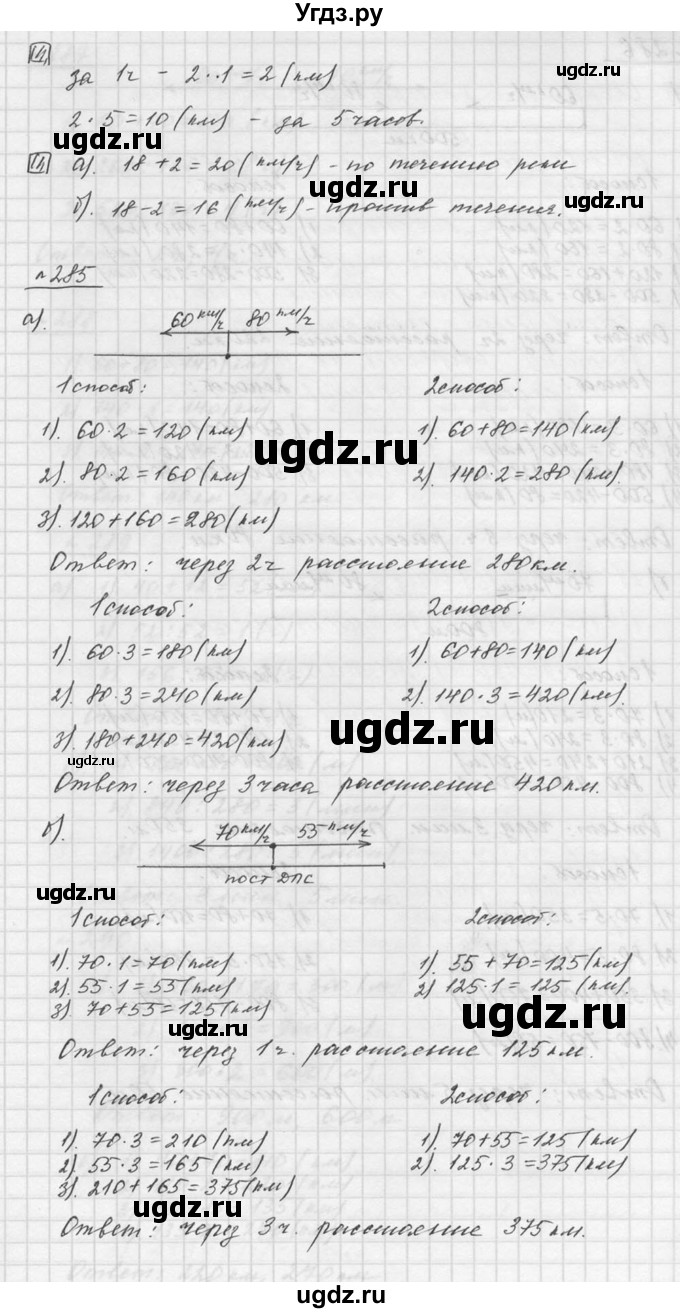 Угдз.ру
Ш
за 1ч - 2·1=2(км)
2·5=10(км) - за 5 часов.
Ш а). 18+2=20(км/ч) - по течению реки
б). 18-2=16(км/ч) - против течения.
№285
а). 60 км/ч 80 км/ч
1 способ: 2 способ:
1). 60·2=120(км) 1). 60+80=140(км)
2). 80·2=160(км) 2). 140·2=280(км)
3). 120+160=280(км)
Ответ: через 2ч расстояние 280км.
1 способ: 2 способ:
1). 60·3=180(км) 1). 60+80=140(км)
2). 80·3=240(км) 2). 140·3=420(км).
3). 180+240=420(км)
Ответ: через 3 часа расстояние 420км.
б). 70 км/ч 55 км/ч
пост ДПС
1 способ: 2 способ:
1). 70·1=70(км) 1). 55+70=125(км)
2). 55·1=55(км) 2) 125·1=125(км)
3). 70+55=125(км)
Ответ: через 1ч. расстояние 125км.
1 способ: 2 способ:
1). 70·3=210(км) 1). 70+55=125(км)
2). 55·3=165(км) 2). 125·3=375(км)
3). 210+165=375(км)
Ответ: через 3ч. расстояние 375км.
ugdz.ru
ugdz.ru
ugdz.ru
ugdz.ru
ugdz.ru
ugdz.ru
ugdz.ru
ugdz.ru
ugdz.ru
ugdz.ru
ugdz.ru
ugdz.ru
ugdz.ru
ugdz.ru